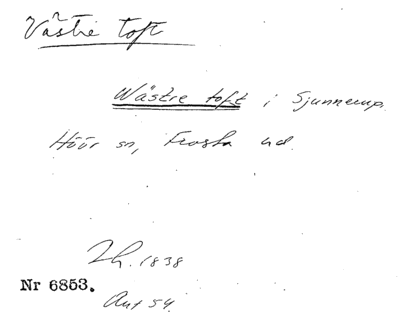 Västre toft
Wästre toft i Sjunnerup.
Höör sn, Frosta hd.
Lh. 1838
Nr 6853.
Akt 54.